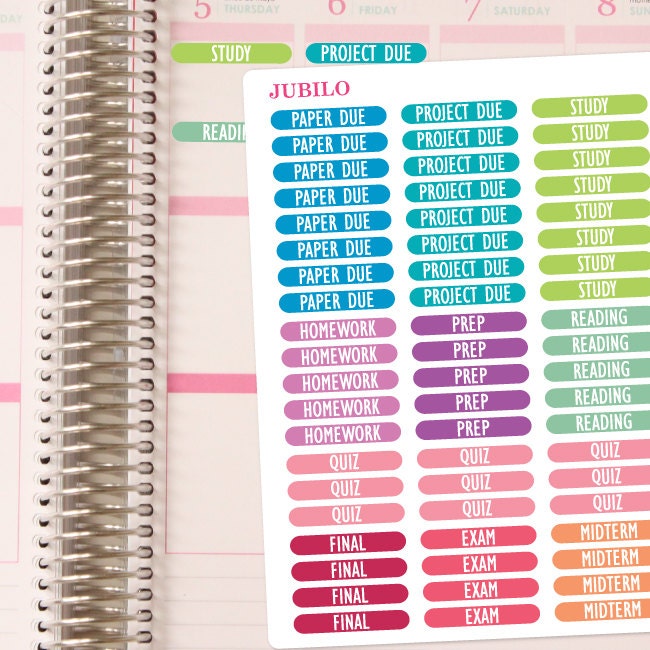 5 6 7 8
THURSDAY FRIDAY SATURDAY
STUDY PROJECT DUE
JUBILO
PAPER DUE PROJECT DUE STUDY
PAPER DUE PROJECT DUE STUDY
PAPER DUE PROJECT DUE STUDY
PAPER DUE PROJECT DUE STUDY
PAPER DUE PROJECT DUE STUDY
PAPER DUE PROJECT DUE STUDY
PAPER DUE PROJECT DUE STUDY
PAPER DUE PROJECT DUE STUDY
READIN
HOMEWORK PREP READING
HOMEWORK PREP READING
HOMEWORK PREP READING
HOMEWORK PREP READING
HOMEWORK PREP READING
QUIZ QUIZ QUIZ
QUIZ QUIZ QUIZ
QUIZ QUIZ QUIZ
FINAL EXAM MIDTERM
FINAL EXAM MIDTERM
FINAL EXAM MIDTERM
FINAL EXAM MIDTERM